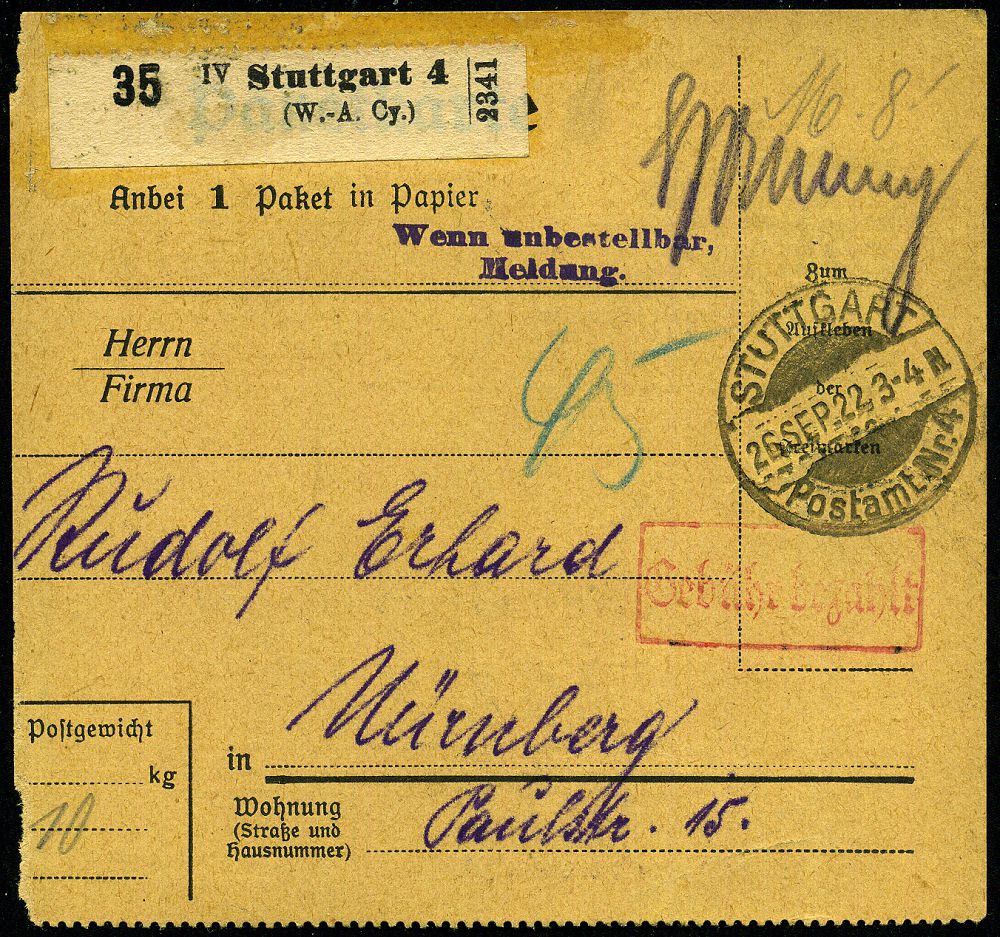 35 IV Stuttgart 4
(W.-A. Cy.)
2341
Anbei 1 Paket in Papier
Wenn unbestellbar,
Meldung.
Zum
Aufkleben
der
Freimarken
STUTTGART
26 SEP. 22. 3-4 N
Postamt Nr. 4
Herrn
Firma
45
Rudolf Erhard
Gebühr bezahlt
Nürnberg
Postgewicht
kg
10
in
Wohnung
(Straße und
Hausnummer)
Paulstr. 15.